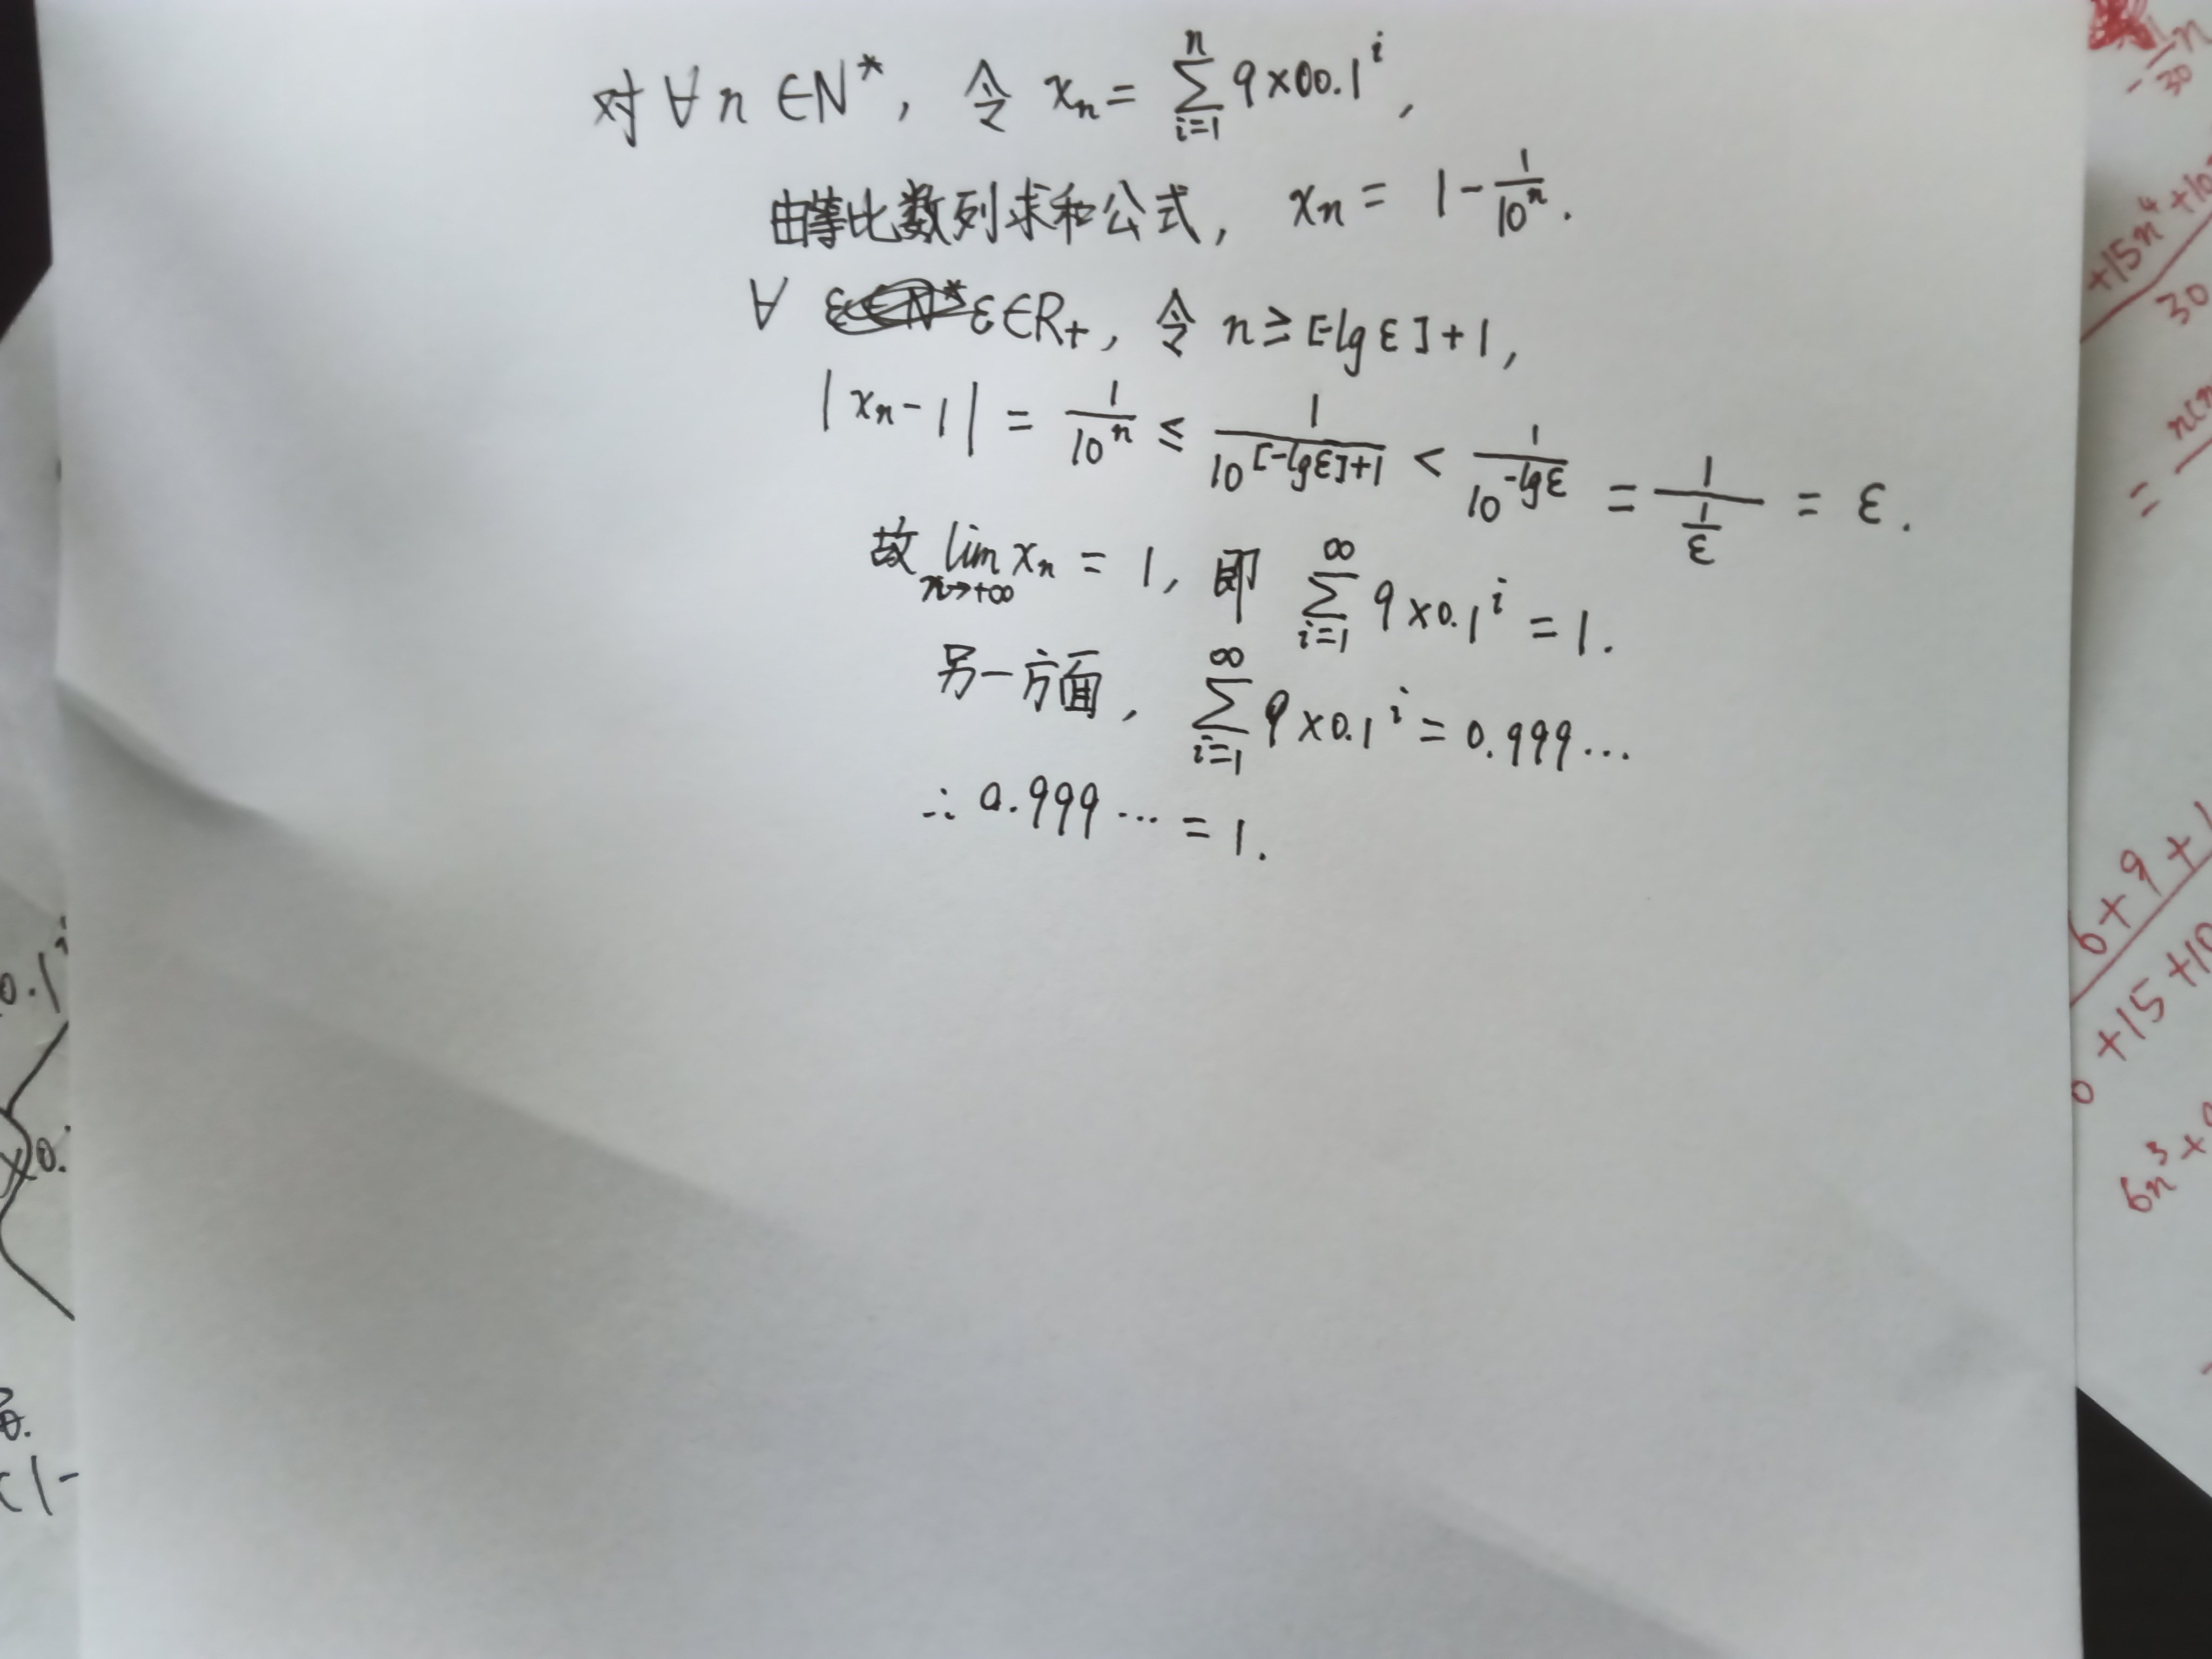 对∀n∈N*, 令 xₙ = ∑_{i=1}^{n} 9×00.1^i,
由等比数列求和公式, xₙ = 1-1/10^n.
∀ ε∈R₊, 令 n≥[-lgε]+1,
|xₙ-1| = 1/10^n ≤ 1/10^([-lgε]+1) < 1/10^(-lgε) = 1/(1/ε) = ε.
故 lim_{n→+∞} xₙ = 1, 即 ∑_{i=1}^{∞} 9×0.1^i = 1.
另一方面, ∑_{i=1}^{∞} 9×0.1^i = 0.999…
∴ 0.999… = 1.
-1/30 n
+15n⁴+10
30
=
6+9+1
+15+10
6n³+
0.1^i
×0.
(1-